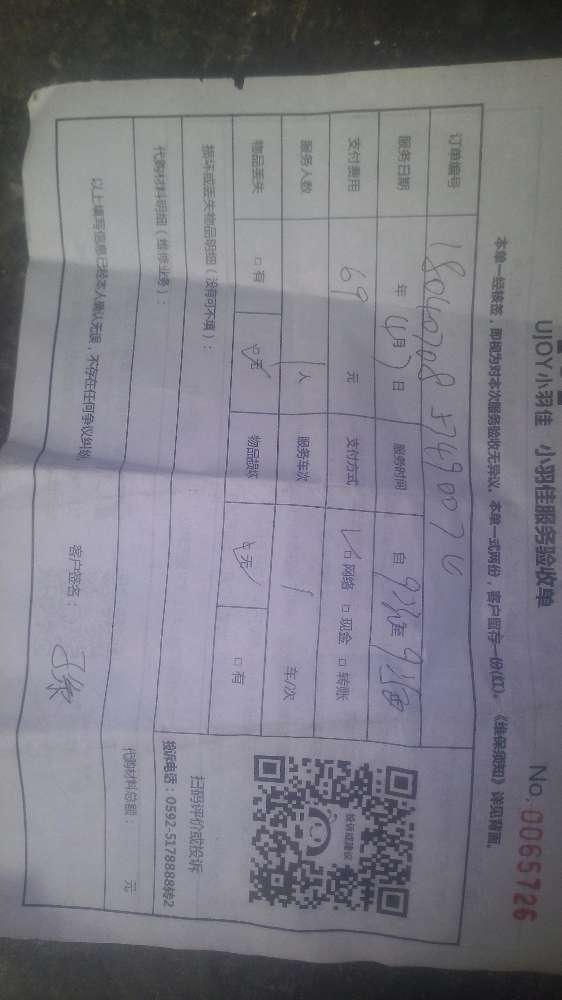 UJOY小羽佳 小羽佳服务验收单
No. 0065726
本单一经核签，即视为对本次服务验收无异议。本单一式两份，客户留存一份(红)。《维保须知》详见背面。
订单编号
服务日期 年 4月 7日 服务时间 自 至
支付费用 69 元 支付方式 ☑网络 □现金 □转账
服务人数 1 人 服务车次 1 车/次
物品丢失 □有 ☑无 物品损坏 ☑无 □有
损坏或丢失物品明细（没有可不填）：
代购材料明细（维修业务）：
代购材料总额： 元
投保或建议
扫码评价或投诉
投诉电话：0592-5178888转2
以上填写信息已经本人确认无误，不存在任何争议纠纷
客户签名：